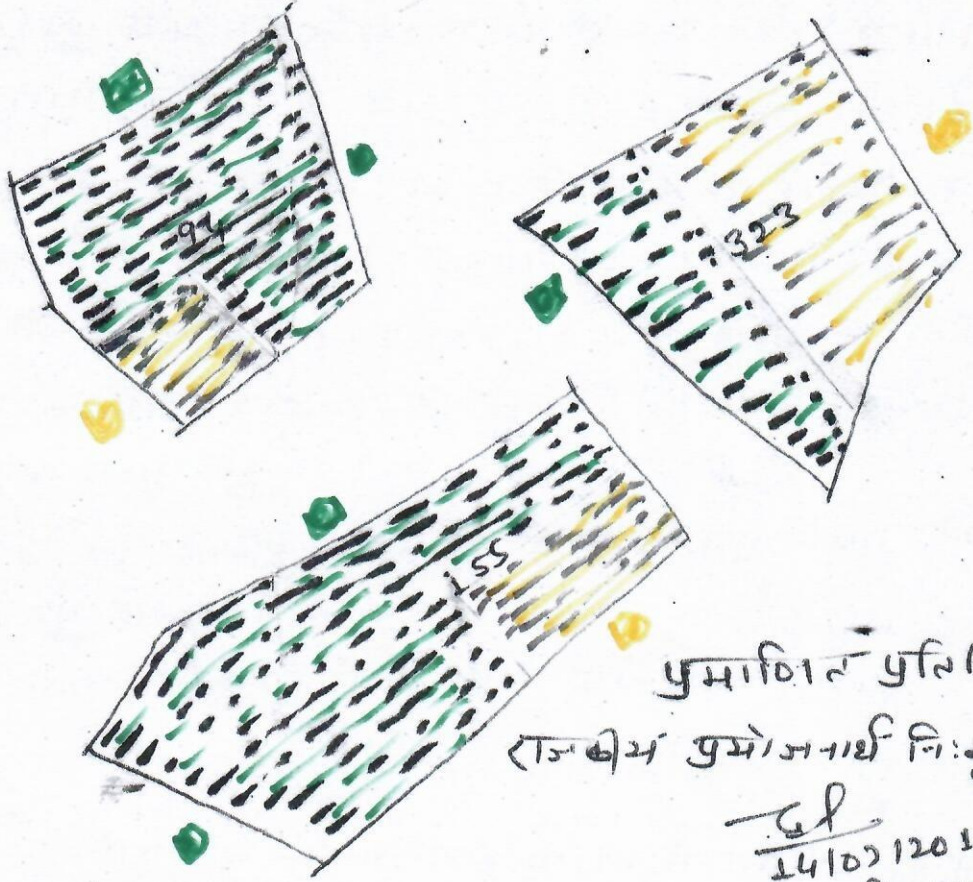 94
323
155
प्रमाणित प्रति
राजकीय प्रयोजनार्थ नि:
14/02/201